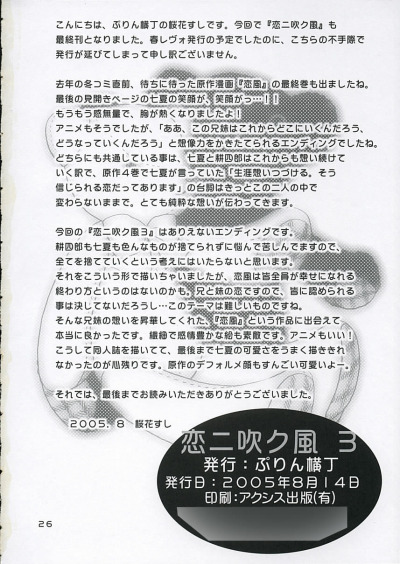 こんにちは、ぷりん横丁の桜花すしです。今回で『恋ニ吹ク風』も
最終刊となりました。春レヴォ発行の予定でしたのに、こちらの不手際で
発行が延びてしまって申し訳ございません。
去年の冬コミ直前、待ちに待った原作漫画『恋風』の最終巻も出ましたね。
最後の見開きページの七夏の笑顔が、笑顔がっ…！！
もうもう感無量で、胸が熱くなりましたよ！
アニメもそうでしたが、「ああ、この兄妹はこれからどこにいくんだろう、
どうなっていくんだろう」と想像力をかきたてられるエンディングでしたね。
どちらにも共通している事は、七夏と耕四郎はこれからも想い続けて
いく訳で、原作４巻で七夏が言っていた「生涯想いつづける。そう
信じられる恋だってあります」の台詞はきっとこの二人の中で
変わらないままで。とても純粋な想いが伝わってきます。
今回の『恋ニ吹ク風３』はありえないエンディングです。
耕四郎も七夏も色んなものが捨てられずに悩んで苦しんでますので、
全てを捨てていくという考えにはいたらないと思います。
それをこういう形で描いちゃいましたが、恋風は皆全員が幸せになれる
終わり方というのはないのかも。兄と妹の恋ですので、皆に認められる
事は決してないだろうし…このテーマは難しいものですね。
そんな兄妹の想いを昇華してくれた、『恋風』という作品に出会えて
本当に良かったです。繊細で感情豊かな絵も素敵です。アニメもいい！
こうして同人誌を描いてて、最後まで七夏の可愛さをうまく描ききれ
なかったのが心残りです。原作のデフォルメ顔もすんごい可愛いよー。
それでは、最後までお読みいただきありがとうございました。
２００５．８　桜花すし
恋ニ吹ク風 3
発行：ぷりん横丁
発行日：２００５年８月１４日
印刷：アクシス出版(有)
26